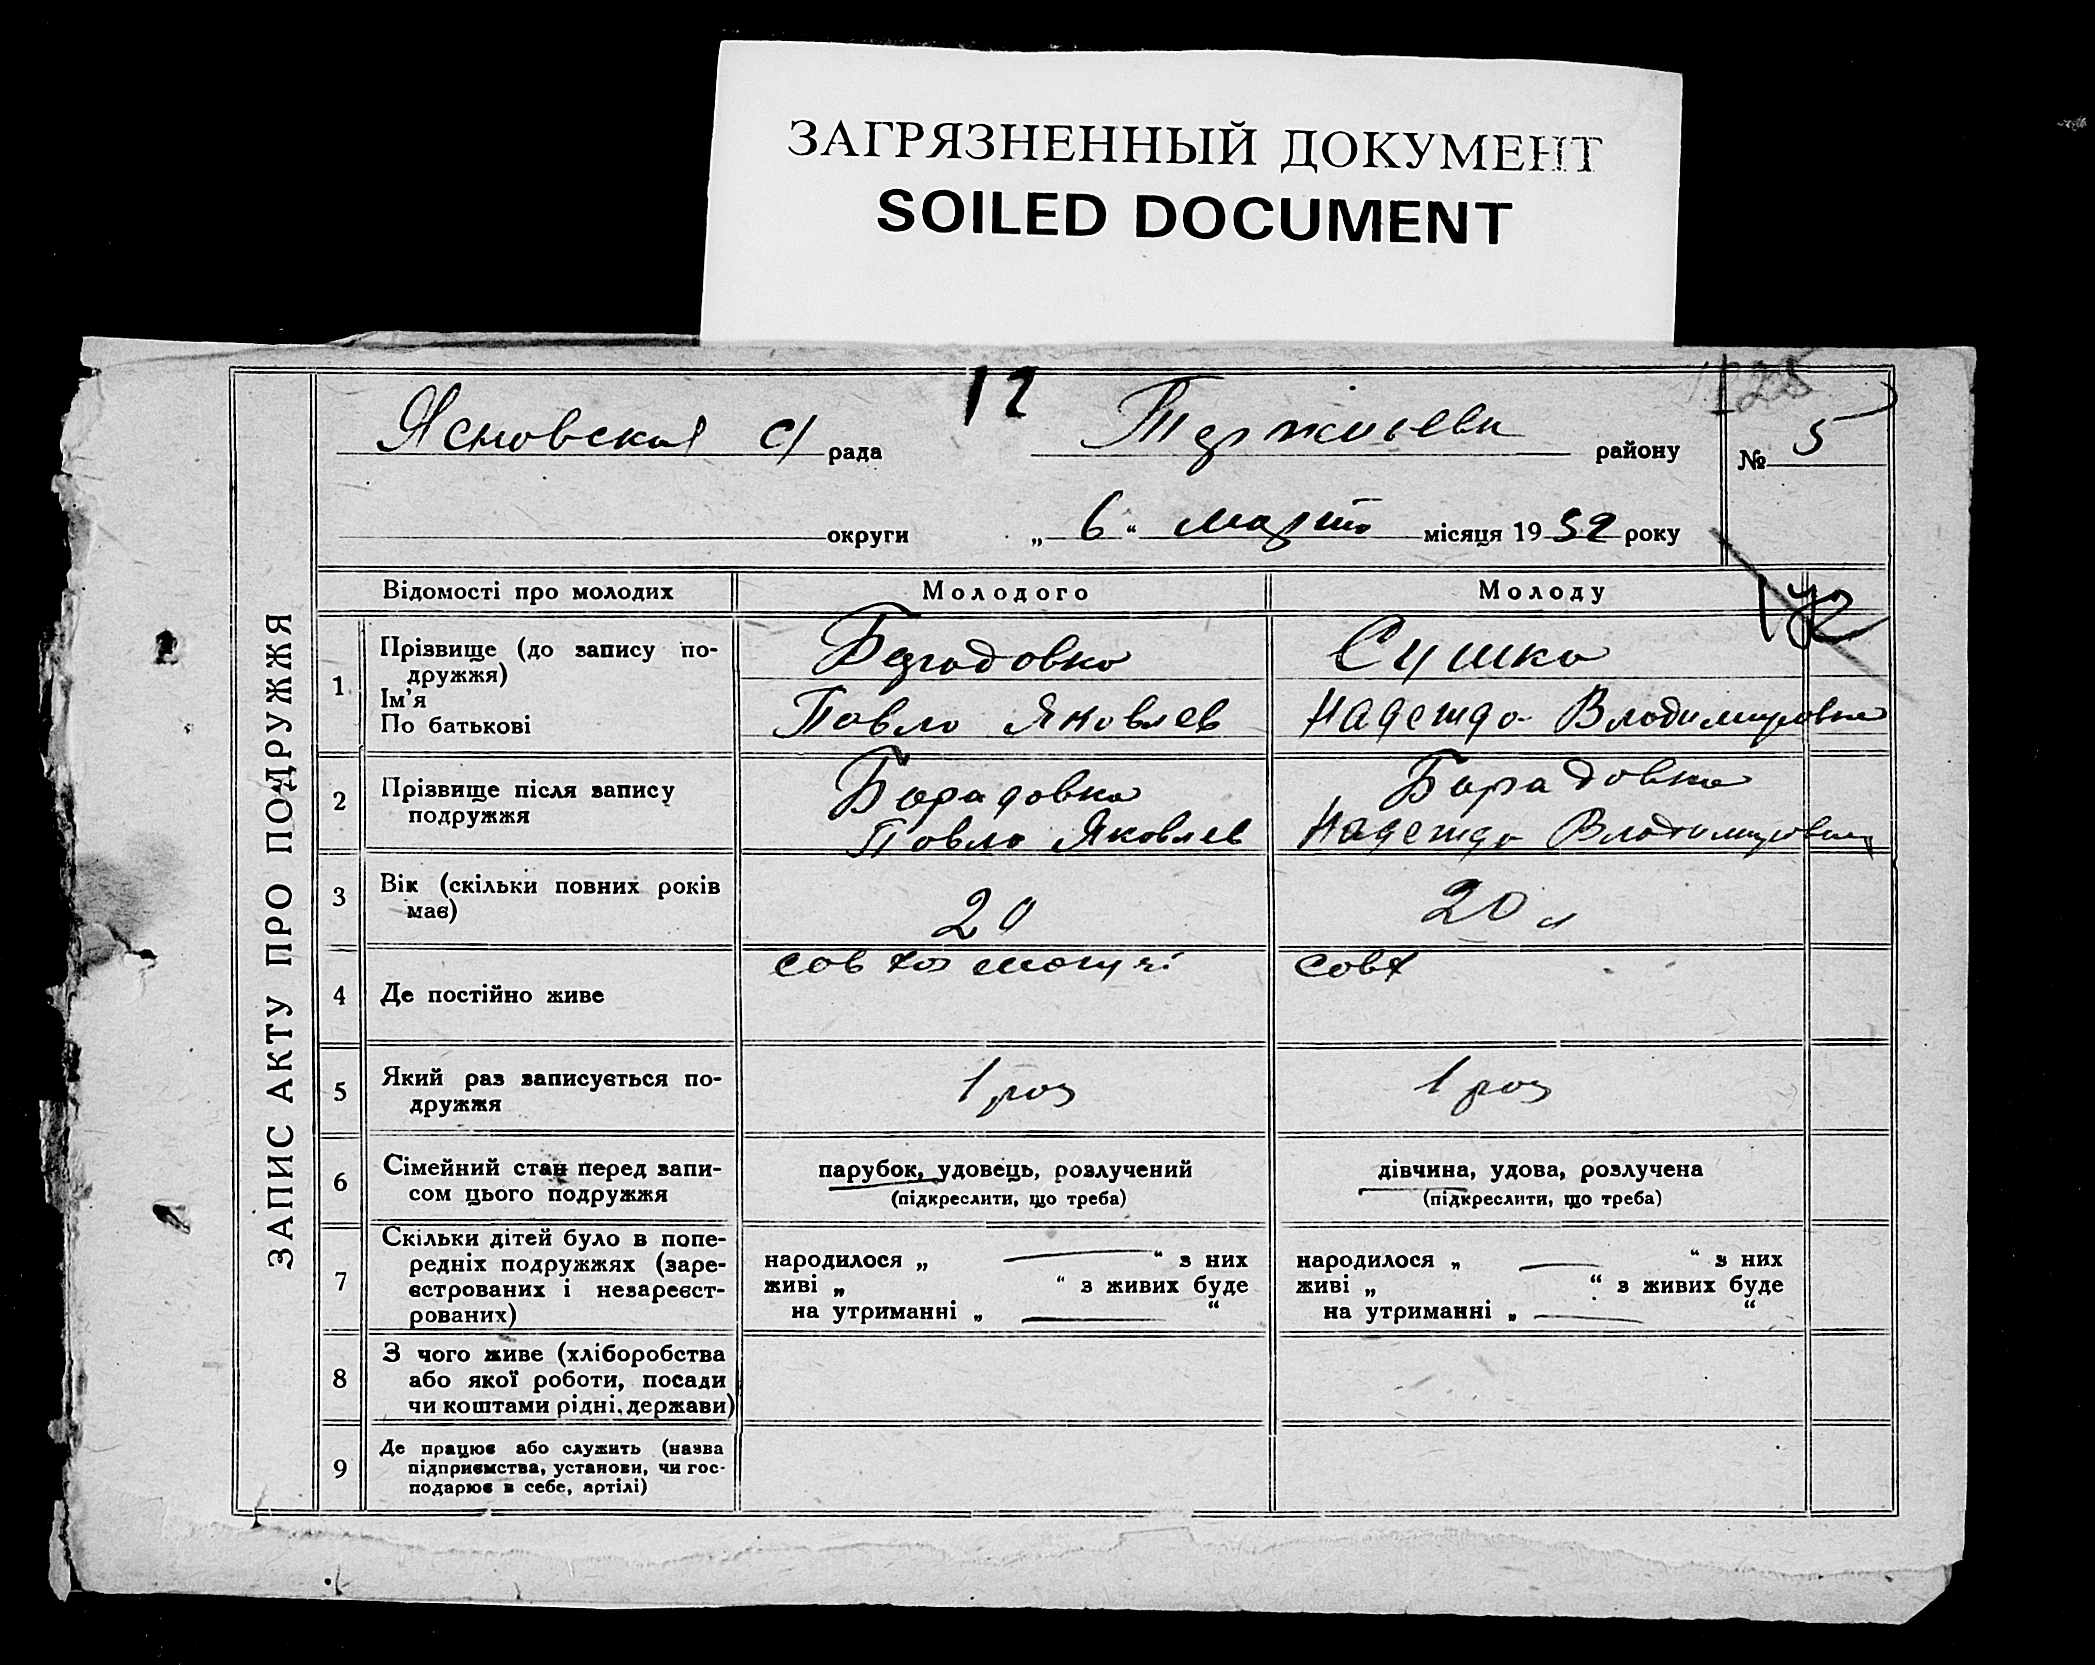 ЗАГРЯЗНЕННЫЙ ДОКУМЕНТ
SOILED DOCUMENT
12
Ясновская с/ рада району № 5
округи „ 6 “ марта місяця 1932 року
ЗАПИС АКТУ ПРО ПОДРУЖЖЯ
Відомості про молодих Молодого Молоду
1 Прізвище (до запису по-
дружжя)
Ім'я
По батькові
Сушко
Павло Яковлев Надежда Владимировна
2 Прізвище після запису
подружжя
Бородовко Бородовко
Павло Яковлев Надежда Владимировна
3 Вік (скільки повних років
має)
20 20 л
4 Де постійно живе
совхоз совх
5 Який раз записується по-
дружжя
1 раз 1 раз
6 Сімейний стан перед запи-
сом цього подружжя
парубок, удовець, розлучений
(підкреслити, що треба)
дівчина, удова, розлучена
(підкреслити, що треба)
7 Скільки дітей було в попе-
редніх подружжях (заре-
єстрованих і незареєст-
рованих)
народилося „ — “ з них
живі „ “ з живих буде
на утриманні „ — “
народилося „ — “ з них
живі „ “ з живих буде
на утриманні „ — “
8 З чого живе (хліборобства
або якої роботи, посади
чи коштами рідні, держави)
9 Де працює або служить (назва
підприємства, установи, чи гос-
подарює в себе, артілі)